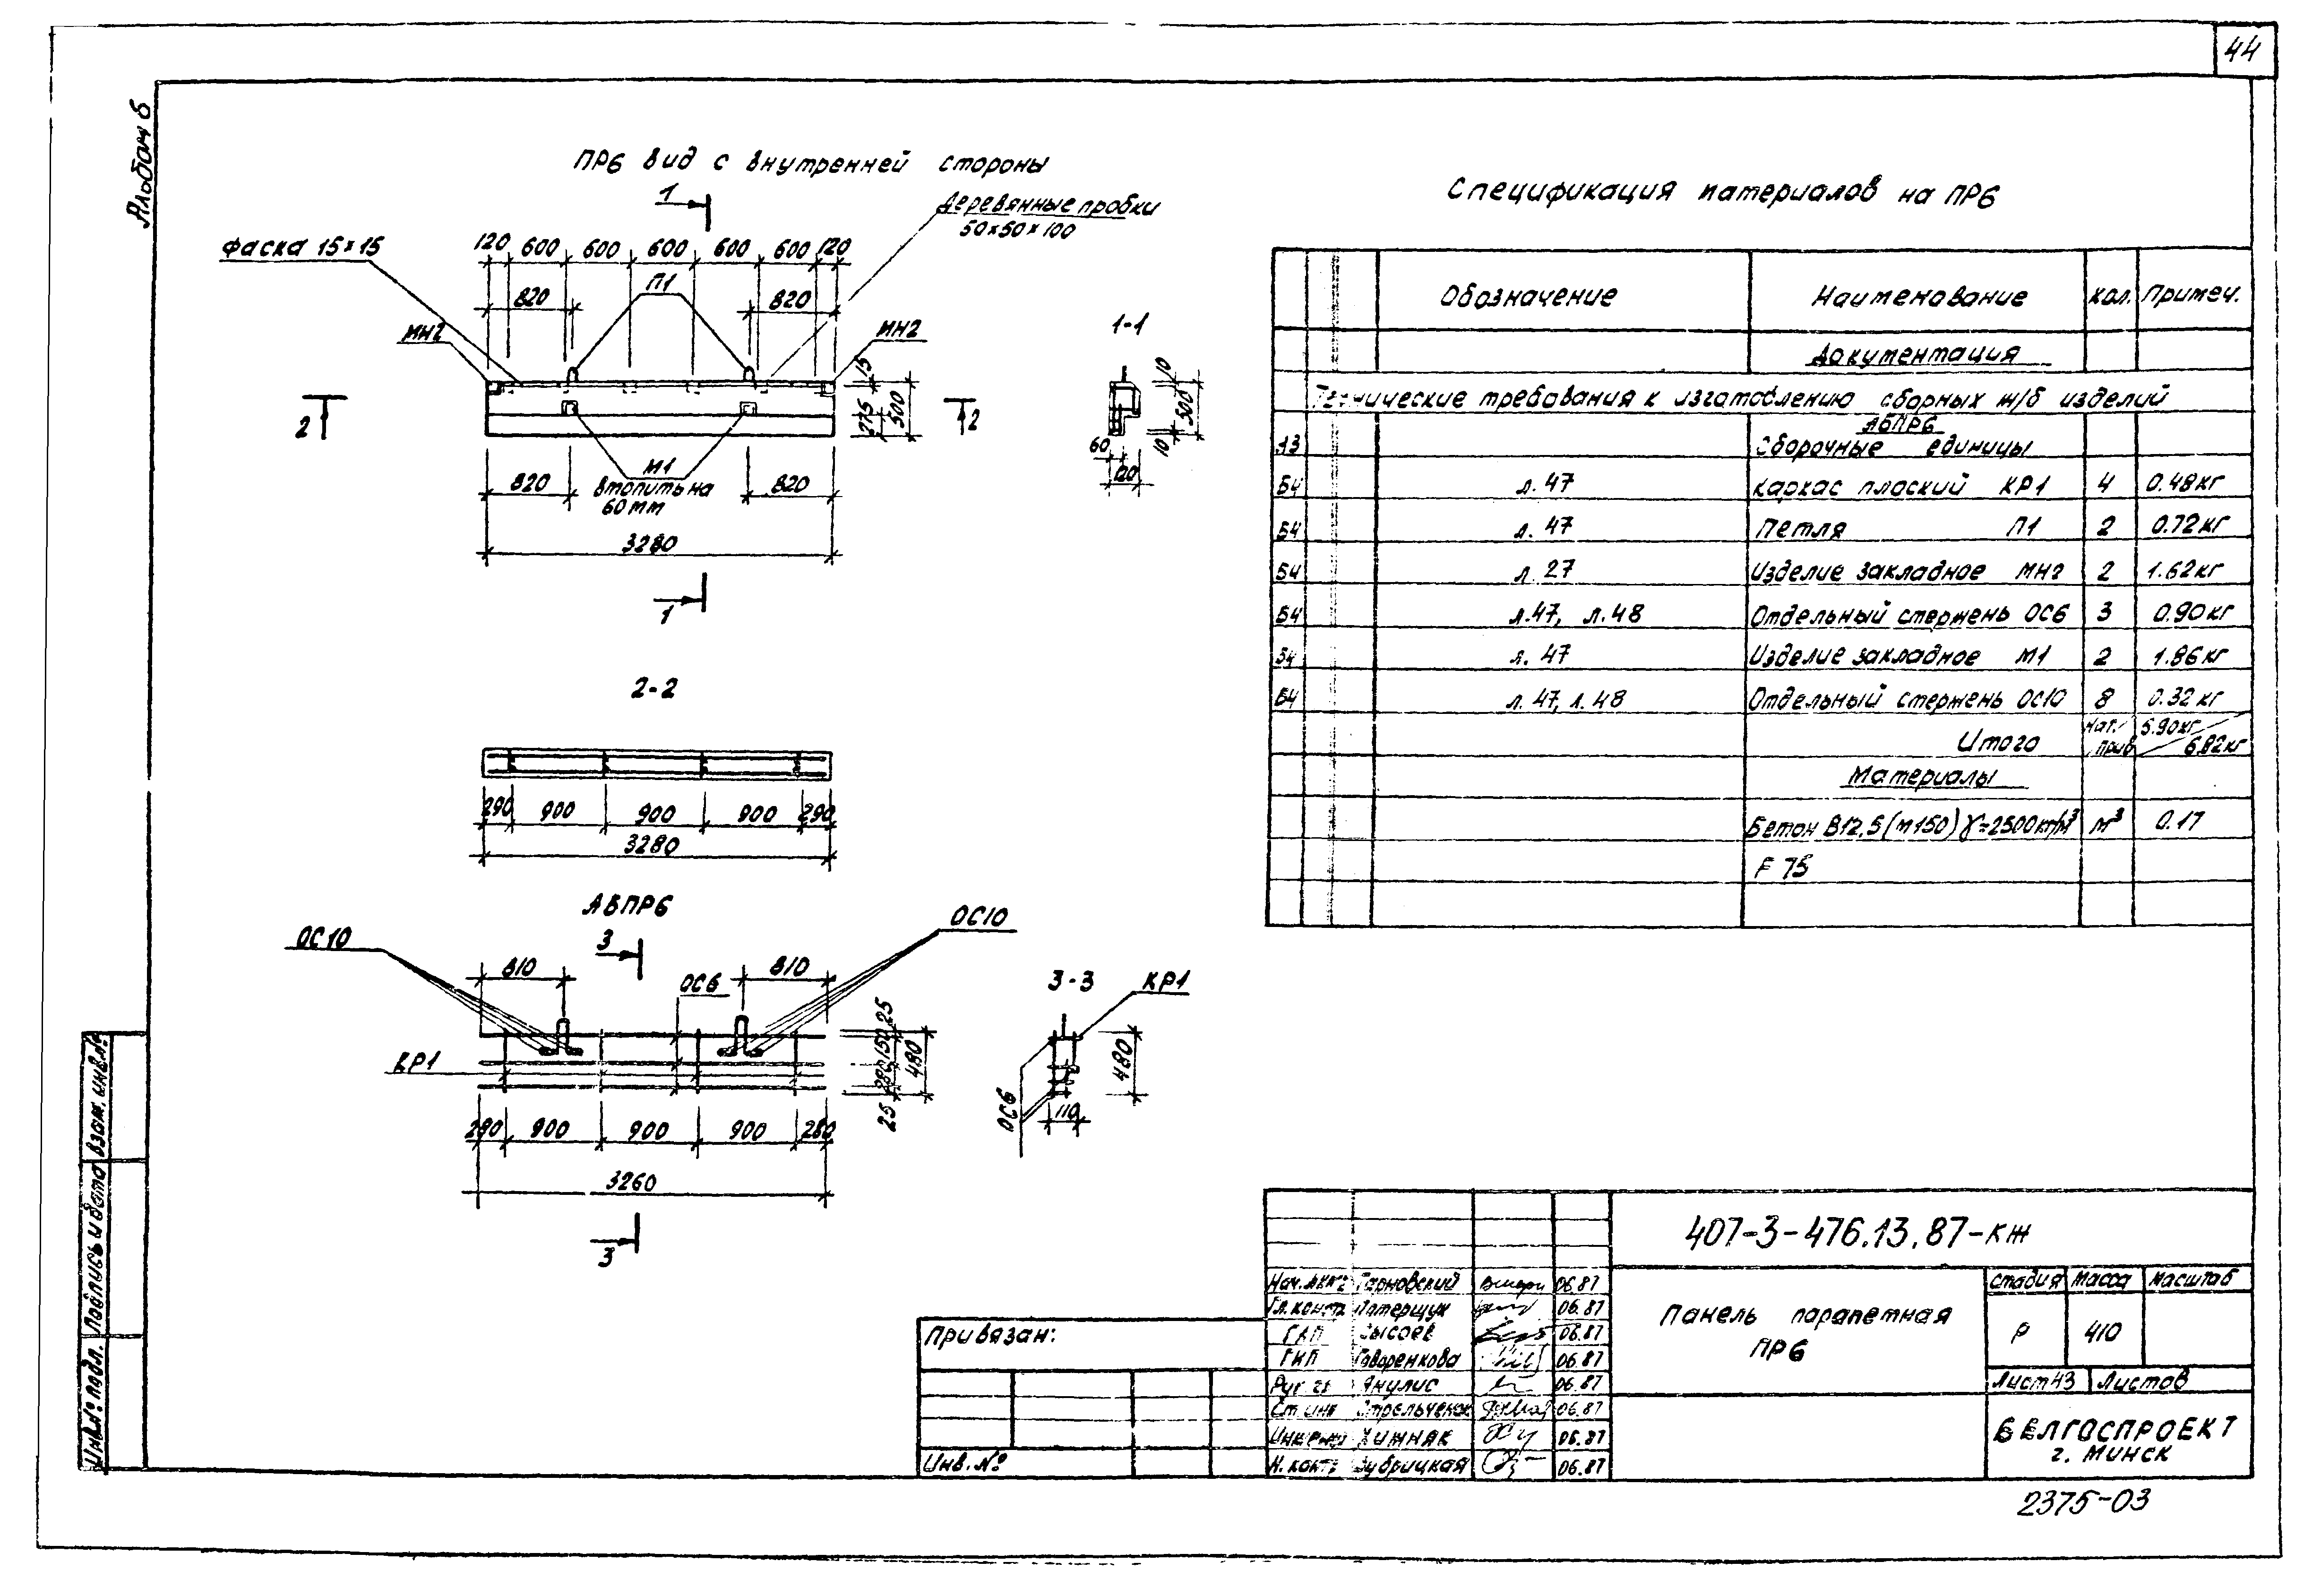 44
Альбом 6
ПР6 вид с внутренней стороны
1
Деревянные пробки
50×50×100
Фаска 15×15
120 600 600 600 600 600 120
820 П1 820
МН2 МН2
15
275 500
2 2
М1
820 втопить на 820
60мм
3280
1
1-1
10
500
10
60
120
2-2
290 900 900 900 290
3280
АБПР6
ОС10 3 ОС10
810 ОС6 810
25
150
280 480
25
КР1
280 900 900 900 280
3260
3
3-3 КР1
480
ОС6
110
Спецификация материалов на ПР6
Обозначение Наименование Кол. Примеч.
Документация
Технические требования к изготовлению сборных ж/б изделий
АБПР6
А3 Сборочные единицы
Б4 л.47 Каркас плоский КР1 4 0.48кг
Б4 л.47 Петля П1 2 0.72кг
Б4 л.27 Изделие закладное МН2 2 1.62кг
Б4 л.47, л.48 Отдельный стержень ОС6 3 0.90кг
Б4 л.47 Изделие закладное М1 2 1.86кг
Б4 л.47, л.48 Отдельный стержень ОС10 8 0.32кг
Итого Нат./прив 5.90кг/6.82кг
Материалы
Бетон В12,5(М150) γ=2500кг/м³ м³ 0.17
F 75
407-3-476.13.87-КЖ
Тарновский 06.87
Гл.констр 06.87
ГАП Сысоев 06.87
ГИП Говоренкова 06.87
Янулис 06.87
Ст.инж 06.87
Хижняк 06.87
Н.контр Зубрицкая 06.87
Панель парапетная
ПР6
Стадия Масса Масштаб
Р 410
Лист 43 Листов
БЕЛГОСПРОЕКТ
г. Минск
Привязан:
Инв.№
Инв.№ подл. Подпись и дата Взам.инв.№
2375-03